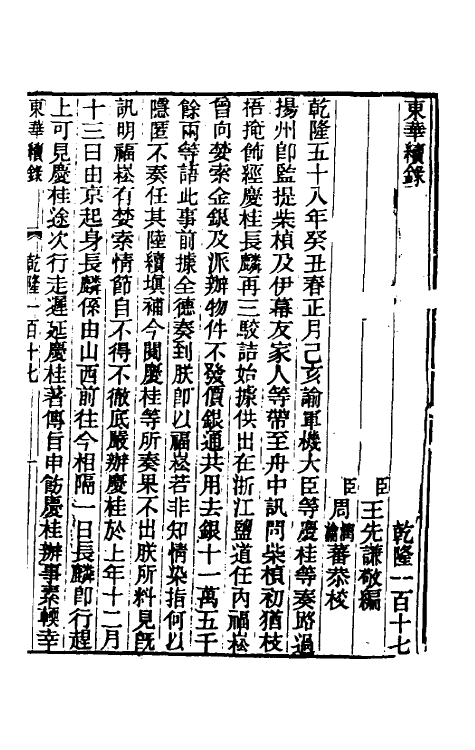 東華續錄
乾隆一百十七
臣王先謙敬編
臣周潤蕃瀹蕃恭校
乾隆五十八年癸丑春正月己亥諭軍機大臣等慶桂等奏路過
揚州卽監提柴楨及伊幕友家人等帶至舟中訊問柴楨初猶枝
梧掩飾經慶桂長麟再三駁詰始據供出在浙江鹽道任內福崧
曾向婪索金銀及派辦物件不發價銀通共用去銀十一萬五千
餘兩等語此事前據全德奏到朕卽以福崧若非知情染指何以
隱匿不奏任其陸續塡補今閱慶桂等所奏果不出朕所料見旣
訊明福崧有婪索情節自不得不徹底嚴辦慶桂於上年十二月
十三日由京起身長麟係由山西前往今相隔一日長麟卽行趕
上可見慶桂途次行走遲延慶桂著傳旨申飭慶桂辦事素輭幸
東華續錄 乾隆一百十七 一